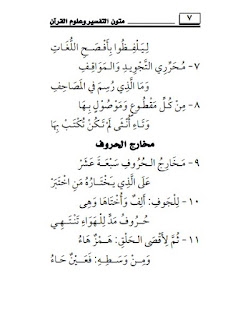 ٧ متون التفسير وعلوم القرآن
لِيَلْفِظُوا بِأَفْصَحِ اللُّغَاتِ
٧- مُحَرِّرِي التَّجْوِيدِ وَالمَوَاقِفِ
وَمَا الَّذِي رُسِمَ فِي المَصَاحِفِ
٨- مِنْ كُلِّ مَقْطُوعٍ وَمَوْصُولٍ بِهَا
وَتَاءِ أُنْثَى لَمْ تَكُنْ تُكْتَبْ بِهَا
مخارج الحروف
٩- مَخَارِجُ الحُرُوفِ سَبْعَةَ عَشَرْ
عَلَى الَّذِي يَخْتَارُهُ مَنِ اخْتَبَرْ
١٠- لِلْجَوفِ: أَلِفٌ وَأُخْتَاهَا وَهِي
حُرُوفُ مَدٍّ لِلْهَوَاءِ تَنْتَهِي
١١- ثُمَّ لِأَقْصَى الحَلْقِ: هَمْزٌ هَاءُ
وَمِنْ وَسَطِهِ: فَعَيْنٌ حَاءُ